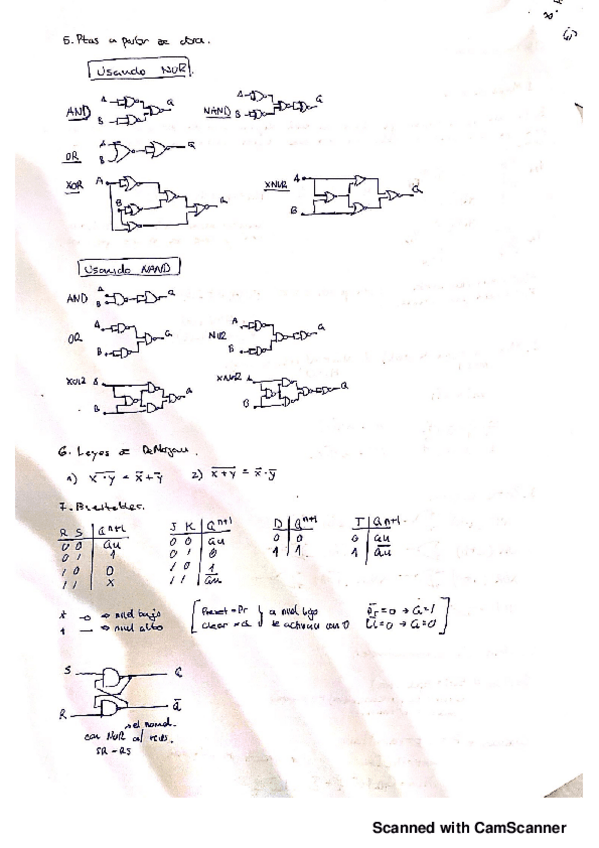 5. Ptas a partir de otra.
Usando NOR.
AND A B Q NAND A B Q
OR A B Q
XOR A B Q XNOR A B Q
Usando NAND
AND A B Q
OR A B Q NOR A B Q
XOR A B Q XNOR A B Q
6. Leyes de DeMorgan.
1) \overline{x·y} = x̄+ȳ 2) \overline{x+y} = x̄·ȳ
7. Biestables.
R S Q^{n+1} J K Q^{n+1} D Q^{n+1} T Q^{n+1}
0 0 Qn 0 0 Qn 0 0 0 Qn
0 1 1 0 1 0 1 1 1 \overline{Qn}
1 0 0 1 0 1
1 1 X 1 1 \overline{Qn}
→ nivel bajo
→ nivel alto
Preset = Pr
Clear = Cl
a nivel bajo
se activan con 0
\overline{Pr} = 0 → Q = 1
\overline{Cl} = 0 → Q = 0
S Q
R Q̄
→ el normal.
con NOR al revés.
SR - RS
Scanned with CamScanner